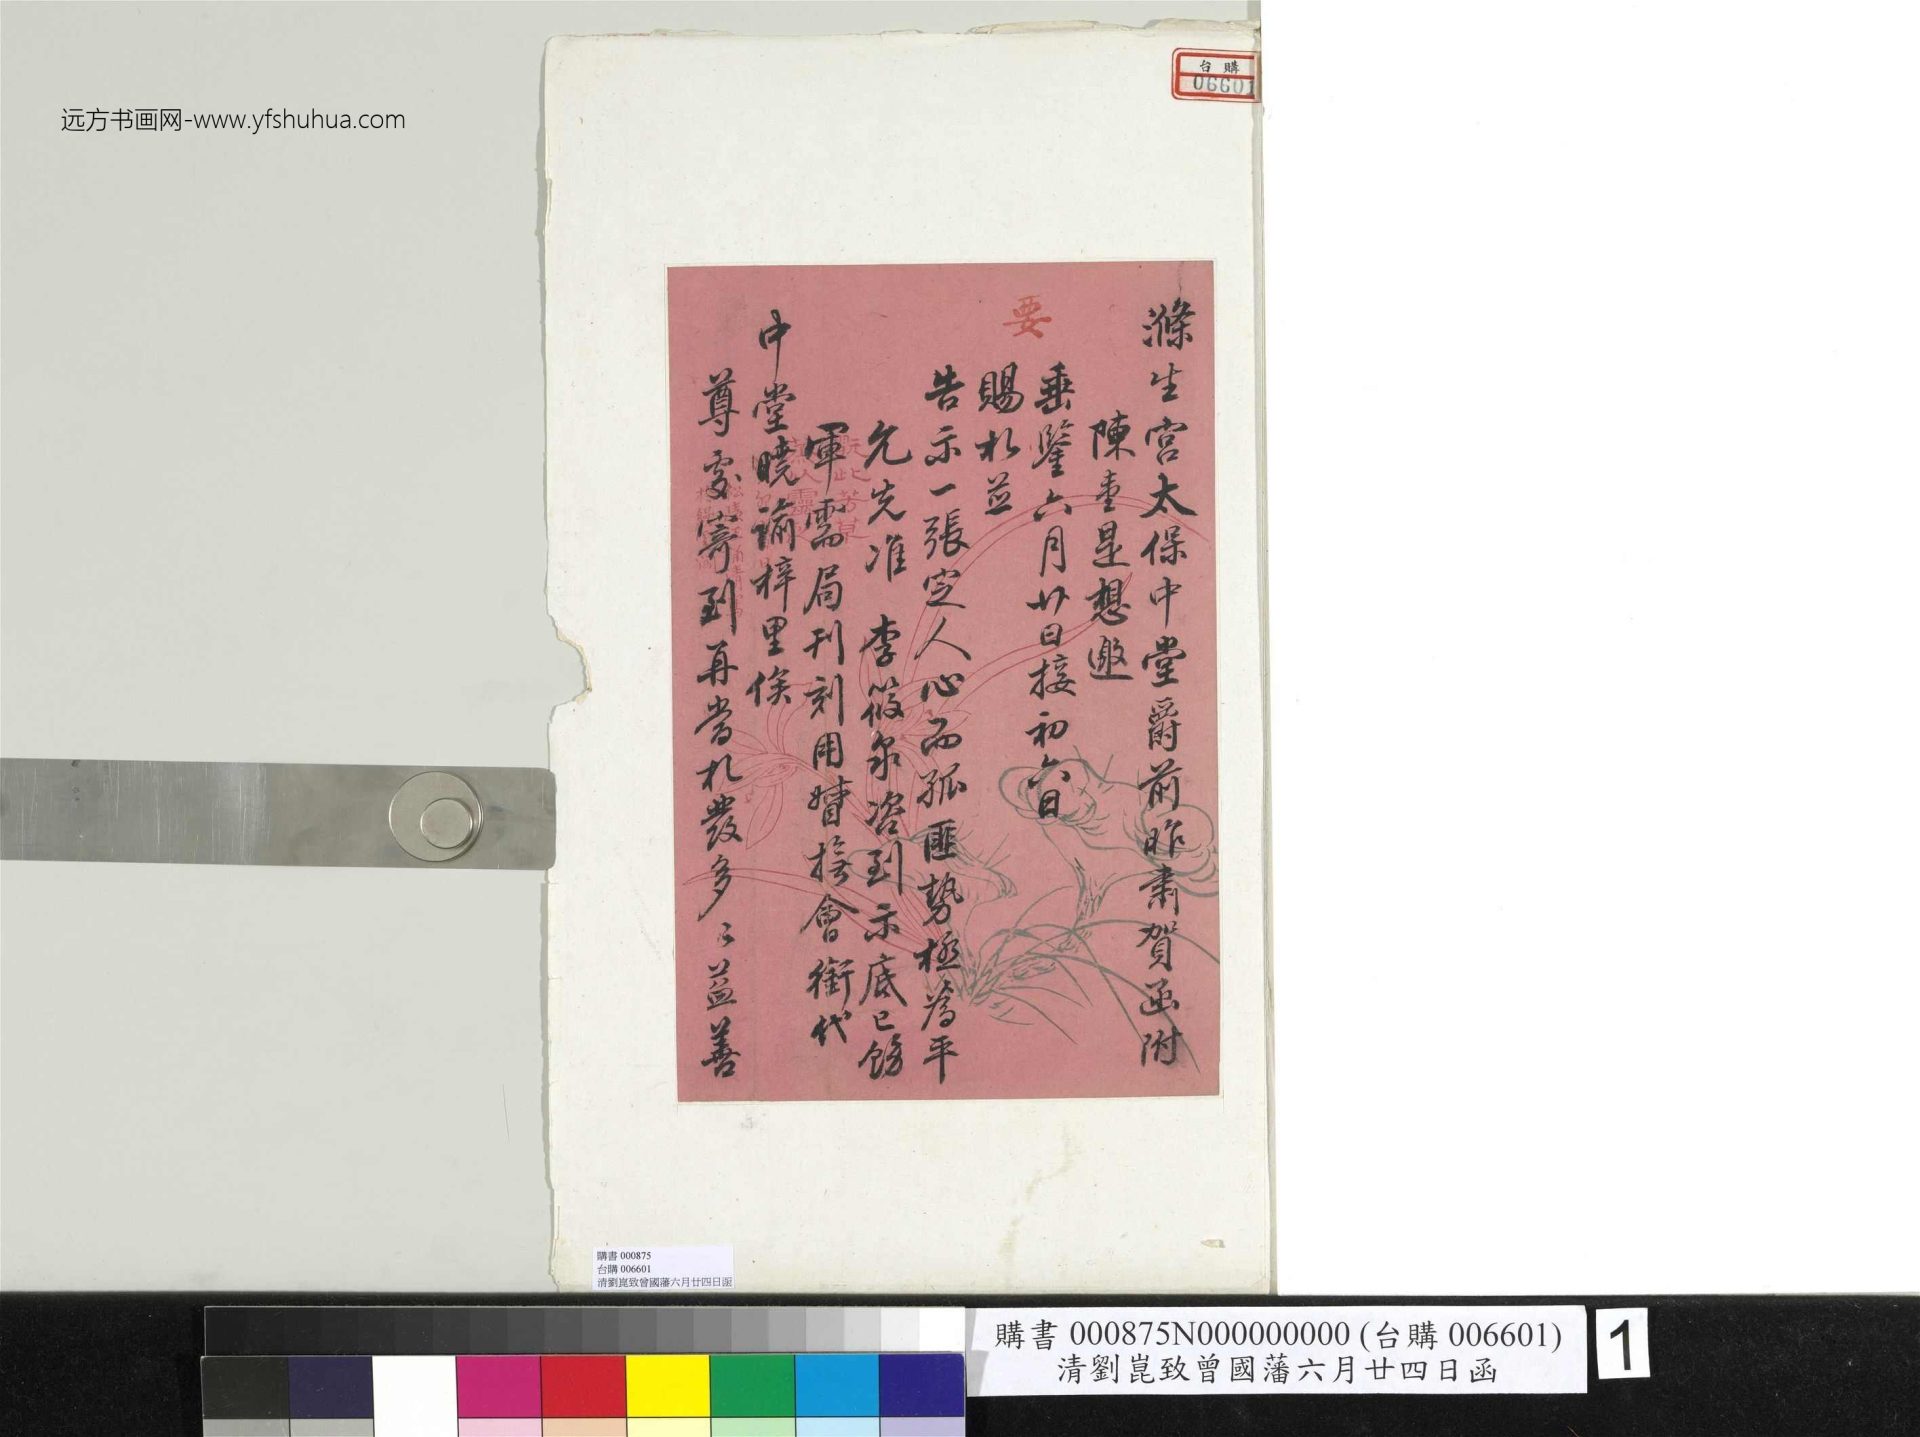 远方书画网-www.yfshuhua.com
台購
06601
要
滌生宮太保中堂爵前昨肅賀函附
陳壹是想邀
垂鑒六月廿日接初六日
賜札並
告示一張定人心而孤匪勢極為平
允先准 李筱泉咨到示底已飭
軍需局刊刻用督撫會銜代
中堂曉諭梓里俟
尊處寄到再當札發多多益善
購書 000875
台購 006601
清劉崑致曾國藩六月廿四日函
購書 000875N000000000 (台購 006601)
清劉崑致曾國藩六月廿四日函
1